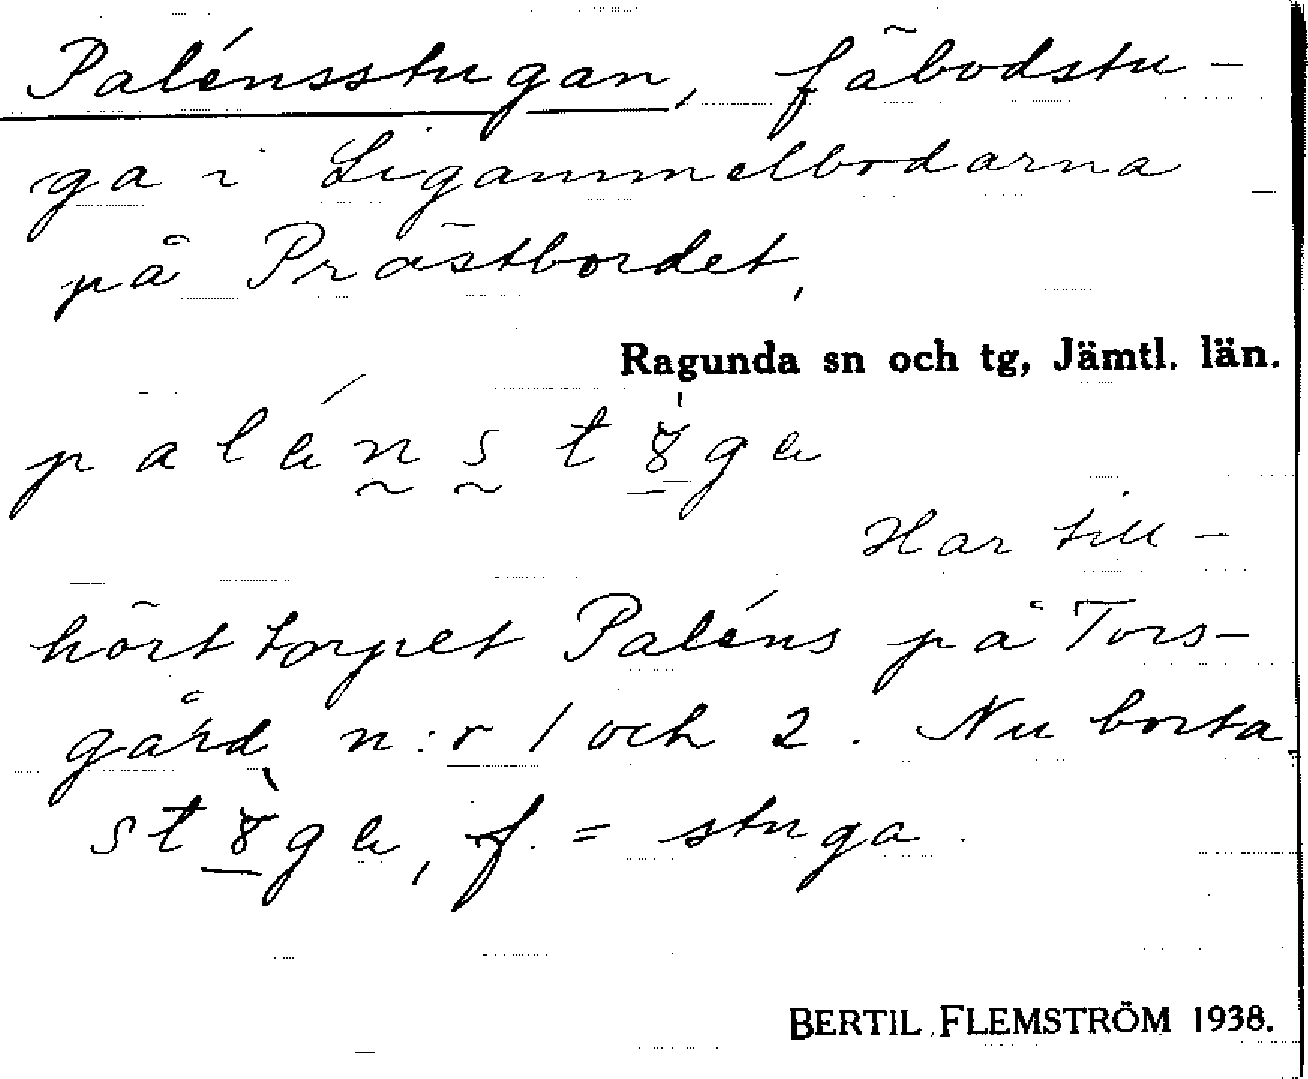 Palénsstugan, fäbodstu-
ga i Ligammelbodarna
på Prästbordet,
Ragunda sn och tg, Jämtl. län.
Har till-
hört torpet Paléns på Tors-
gård n:r 1 och 2. Nu borta.
f. = stuga.
BERTIL FLEMSTRÖM 1938.